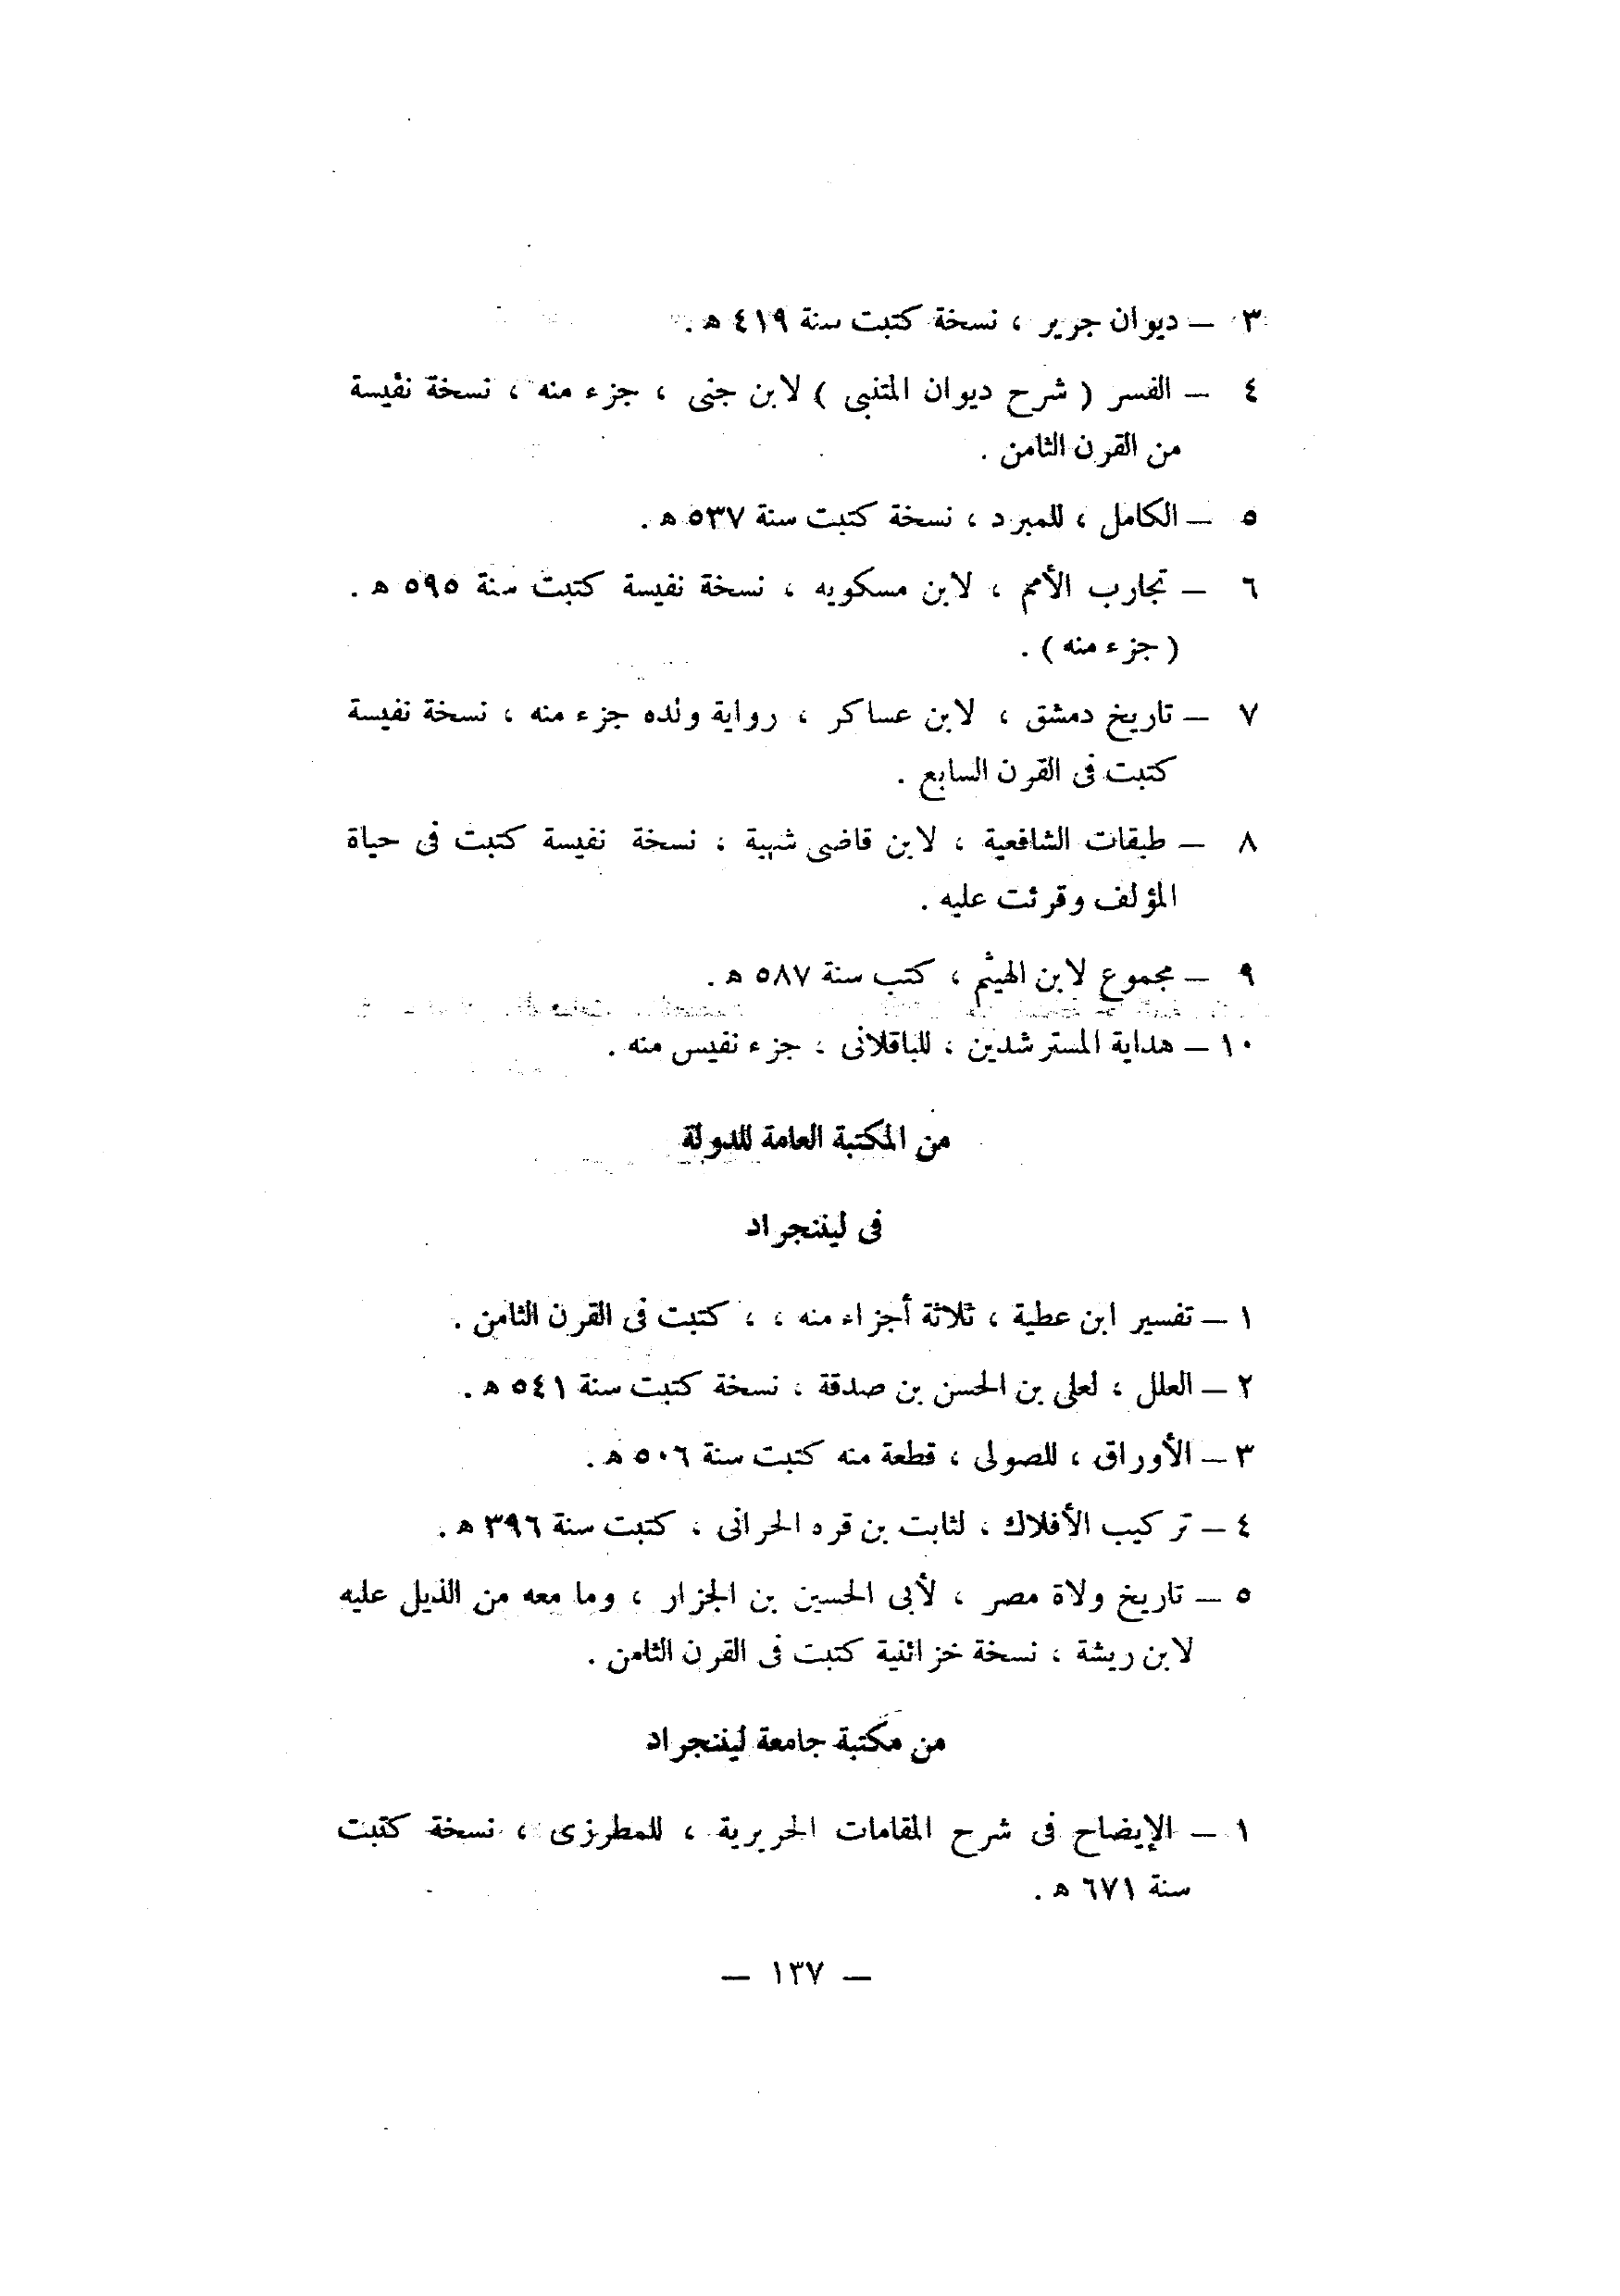 ٣ — ديوان جرير ، نسخة كتبت سنة ٤١٩ ه .
٤ — الفسر ( شرح ديوان المتنبى ) لابن جنى ، جزء منه ، نسخة نفيسة
من القرن الثامن .
٥ — الكامل ، للمبرد ، نسخة كتبت سنة ٥٣٧ ه .
٦ — تجارب الأمم ، لابن مسكويه ، نسخة نفيسة كتبت سنة ٥٩٥ ه .
( جزء منه ) .
٧ — تاريخ دمشق ، لابن عساكر ، رواية ولده جزء منه ، نسخة نفيسة
كتبت فى القرن السابع .
٨ — طبقات الشافعية ، لابن قاضى شهبة ، نسخة نفيسة كتبت فى حياة
المؤلف وقرئت عليه .
٩ — مجموع لابن الهيثم ، كتب سنة ٥٨٧ ه .
١٠ — هداية المسترشدين ، للباقلانى ، جزء نفيس منه .
من المكتبة العامة للدولة
فى ليننجراد
١ — تفسير ابن عطية ، ثلاثة أجزاء منه ، ، كتبت فى القرن الثامن .
٢ — العلل ، لعلى بن الحسن بن صدقة ، نسخة كتبت سنة ٥٤١ ه .
٣ — الأوراق ، للصولى ، قطعة منه كتبت سنة ٥٠٦ ه .
٤ — تركيب الأفلاك ، لثابت بن قره الحرانى ، كتبت سنة ٣٩٦ ه .
٥ — تاريخ ولاة مصر ، لأبى الحسين بن الجزار ، وما معه من الذيل عليه
لابن ريشة ، نسخة خزائنية كتبت فى القرن الثامن .
من مكتبة جامعة ليننجراد
١ — الإيضاح فى شرح المقامات الحريرية ، للمطرزى ، نسخة كتبت
سنة ٦٧١ ه .
— ١٣٧ —